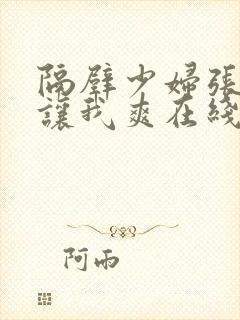 隔壁少婦張
讓我爽在綫
阿雨